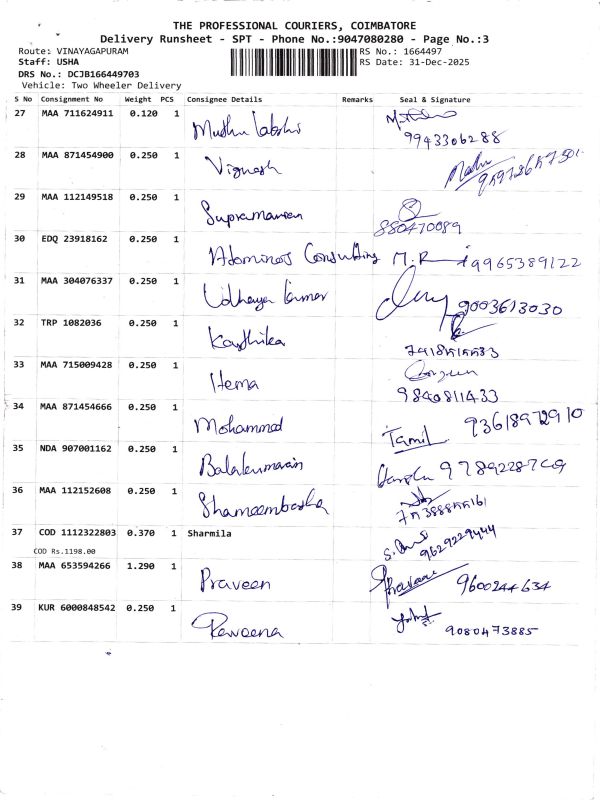 THE PROFESSIONAL COURIERS, COIMBATORE
Delivery Runsheet - SPT - Phone No.:9047080280 - Page No.:3
Route: VINAYAGAPURAM RS No.: 1664497
Staff: USHA RS Date: 31-Dec-2025
DRS No.: DCJB166449703
Vehicle: Two Wheeler Delivery
S No Consignment No Weight PCS Consignee Details Remarks Seal & Signature
27 MAA 711624911 0.120 1 Muthu lakshmi
9943306288
28 MAA 871454900 0.250 1 Vignesh
29 MAA 112149518 0.250 1 Supramanian
880470089
30 EDQ 23918162 0.250 1 Adominos Consulting M.R 9965389122
31 MAA 304076337 0.250 1 Udhaya kumar 9003613030
32 TRP 1082036 0.250 1 Karthika
33 MAA 715009428 0.250 1 Hema
9840811433
34 MAA 871454666 0.250 1 Mohammed Tamil 93618972910
35 NDA 907001162 0.250 1 Balakumaran
36 MAA 112152608 0.250 1 Shameembasha
37 COD 1112322803 0.370 1 Sharmila
COD Rs.1198.00 9629229444
38 MAA 653594266 1.290 1 Praveen Praveen 9600244634
39 KUR 6000848542 0.250 1 Raveena
9080473885